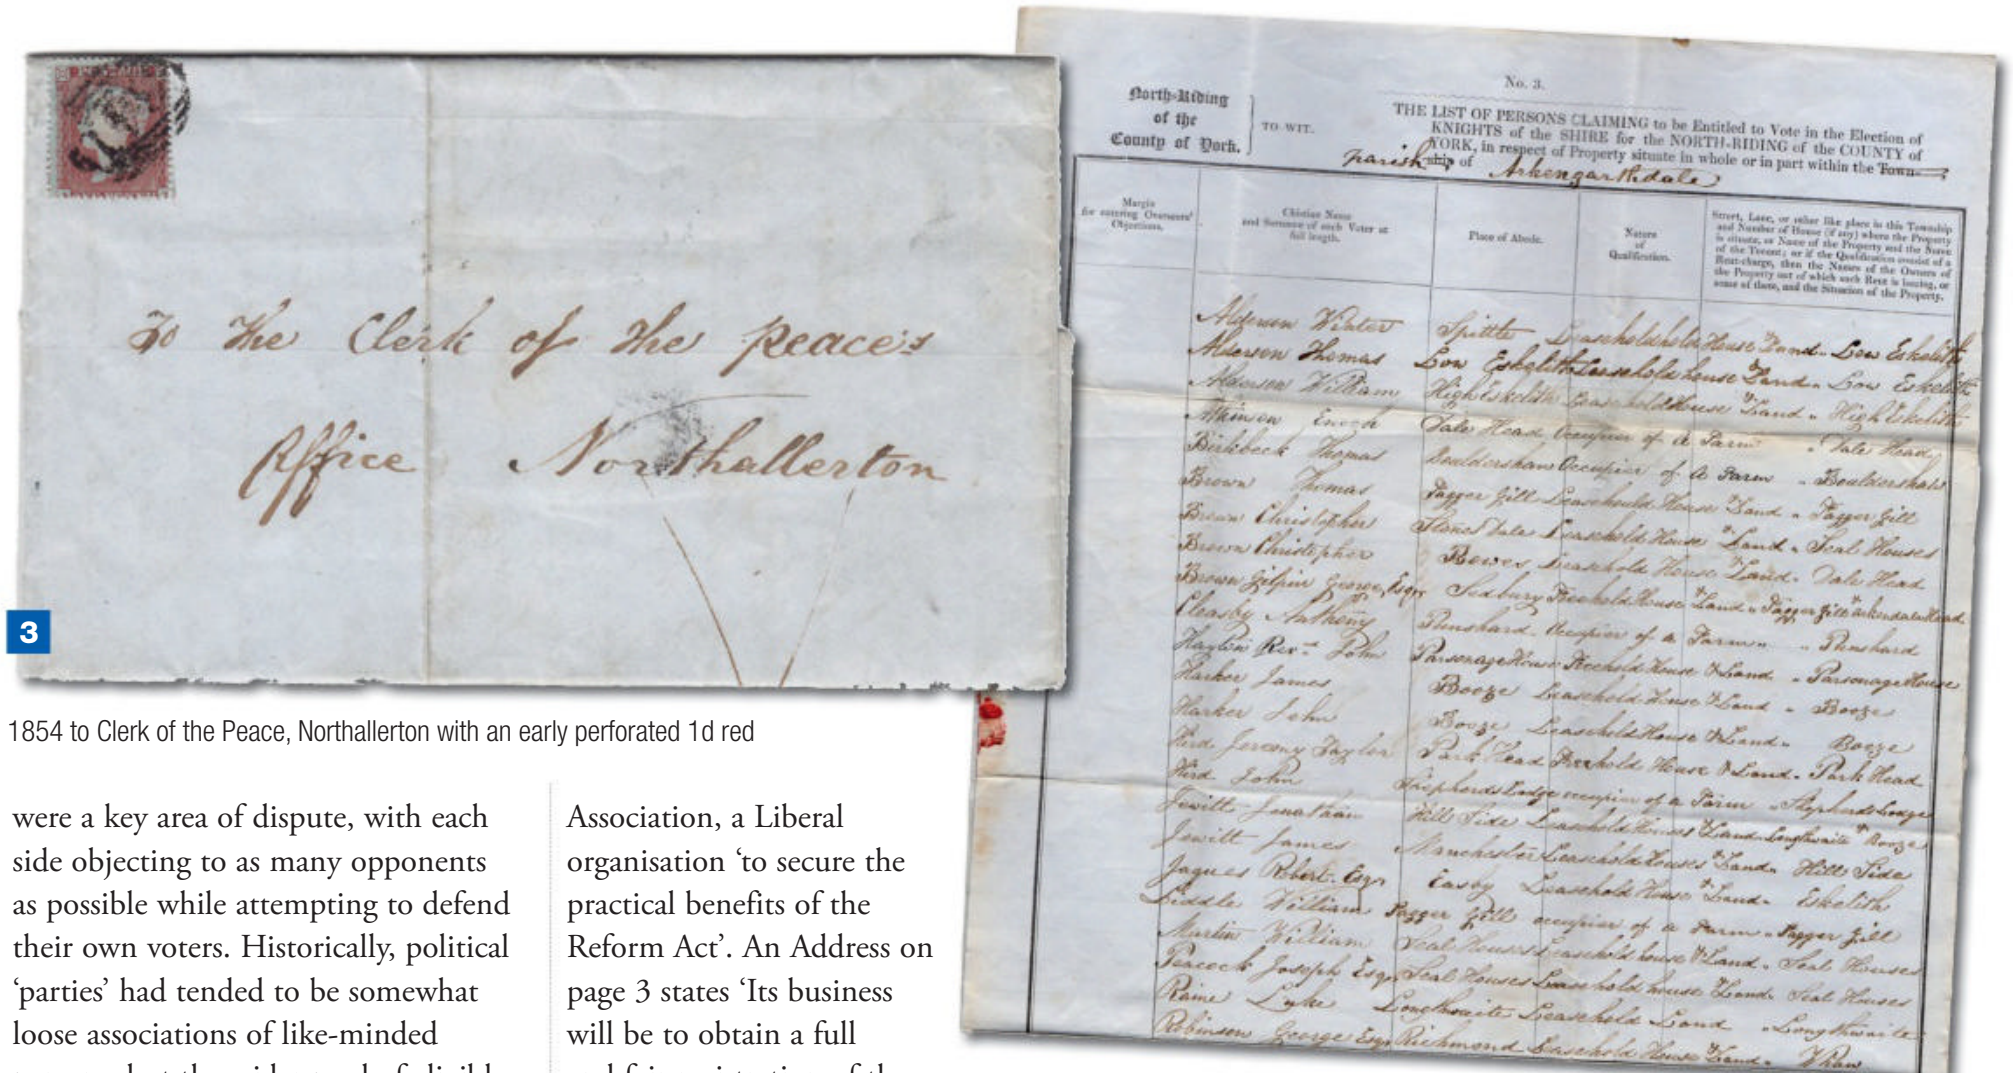 To the Clerk of the Peace's
Office Northallerton
3
1854 to Clerk of the Peace, Northallerton with an early perforated 1d red
were a key area of dispute, with each
side objecting to as many opponents
as possible while attempting to defend
their own voters. Historically, political
‘parties’ had tended to be somewhat
loose associations of like-minded
Association, a Liberal
organisation ‘to secure the
practical benefits of the
Reform Act’. An Address on
page 3 states ‘Its business
will be to obtain a full
No. 3.
North-Riding
of the
County of York.
TO WIT.
THE LIST OF PERSONS CLAIMING to be Entitled to Vote in the Election of
KNIGHTS of the SHIRE for the NORTH-RIDING of the COUNTY of
YORK, in respect of Property situate in whole or in part within the Town-
parish ship of Arkengarthdale
Margin
for entering Overseers'
Objections.
Christian Name
and Surname of each Voter at
full length.
Place of Abode.
Nature
of
Qualification.
Street, Lane, or other like place in this Township
and Number of House (if any) where the Property
is situate, or Name of the Property and the Name
of the Tenant; or if the Qualification consist of a
Rent-charge, then the Names of the Owners of
the Property out of which such Rent is issuing, or
some of them, and the Situation of the Property.
Alderson Winter Spittle Leaseholdhold House & Land - Low Eskelith
Alderson Thomas Low Eskelith Leasehold house & Land - Low Eskelith
Alderson William High Eskelith Leasehold House & Land - High Eskelith
Atkinson Enoch Dale Head Occupier of a Farm - Dale Head
Birkbeck Thomas Bouldershaw Occupier of a Farm - Bouldershaw
Brown Thomas Fagger Gill Leasehould House & Land - Fagger Gill
Brown Christopher Leasehold House & Land - Seal Houses
Brown Christopher Bowes Leasehold House & Land - Dale Head
Brown Gilpin George Esqr Sedbury Freehold House & Land - Fagger Gill &
Cleasby Anthony Punshard - Occupier of a Farm - Punshard
Revd John Parsonage House Freehold House & Land - Parsonage House
Harker James Booze Leasehold House & Land - Booze
Harker John Booze Leasehold House & Land - Booze
Hird Jeremy Taylor Park Head Freehold House & Land - Park Head
Hird John Shepherds Lodge occupier of a Farm - Shepherds Lodge
Jewitt Jonathan Hill Side Leasehold Houses & Land Longthwaite & Booze
Jewitt James Manchester Leasehold Houses & Land - Hill Side
Jaques Robert Esqr Easby Leasehold House & Land - Eskelith
Liddle William Fagger Gill occupier of a Farm - Fagger Gill
Martin William Seal Houses Leasehold house & Land - Seal Houses
Peacock Joseph Esqr Seal Houses Leasehold house & Land - Seal Houses
Raine Luke Longthwaite Leasehold Land - Longthwaite
Robinson George Esqr Richmond Leasehold House & Land - Whaw